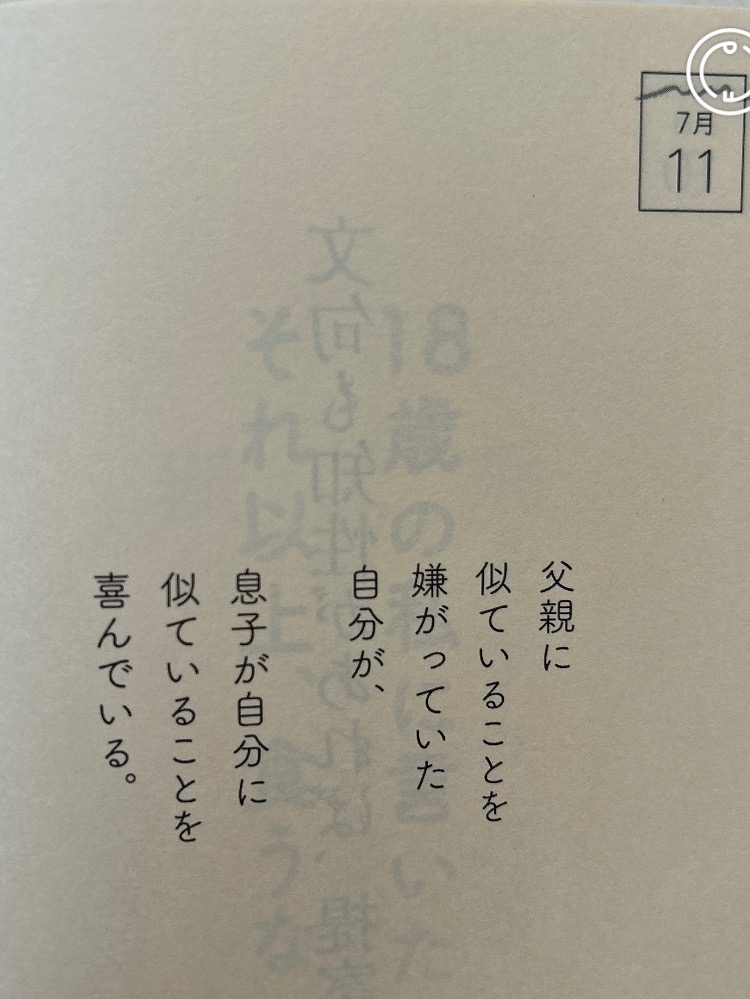 7月
11
父親に
似ていることを
嫌がっていた
自分が、
息子が自分に
似ていることを
喜んでいる。